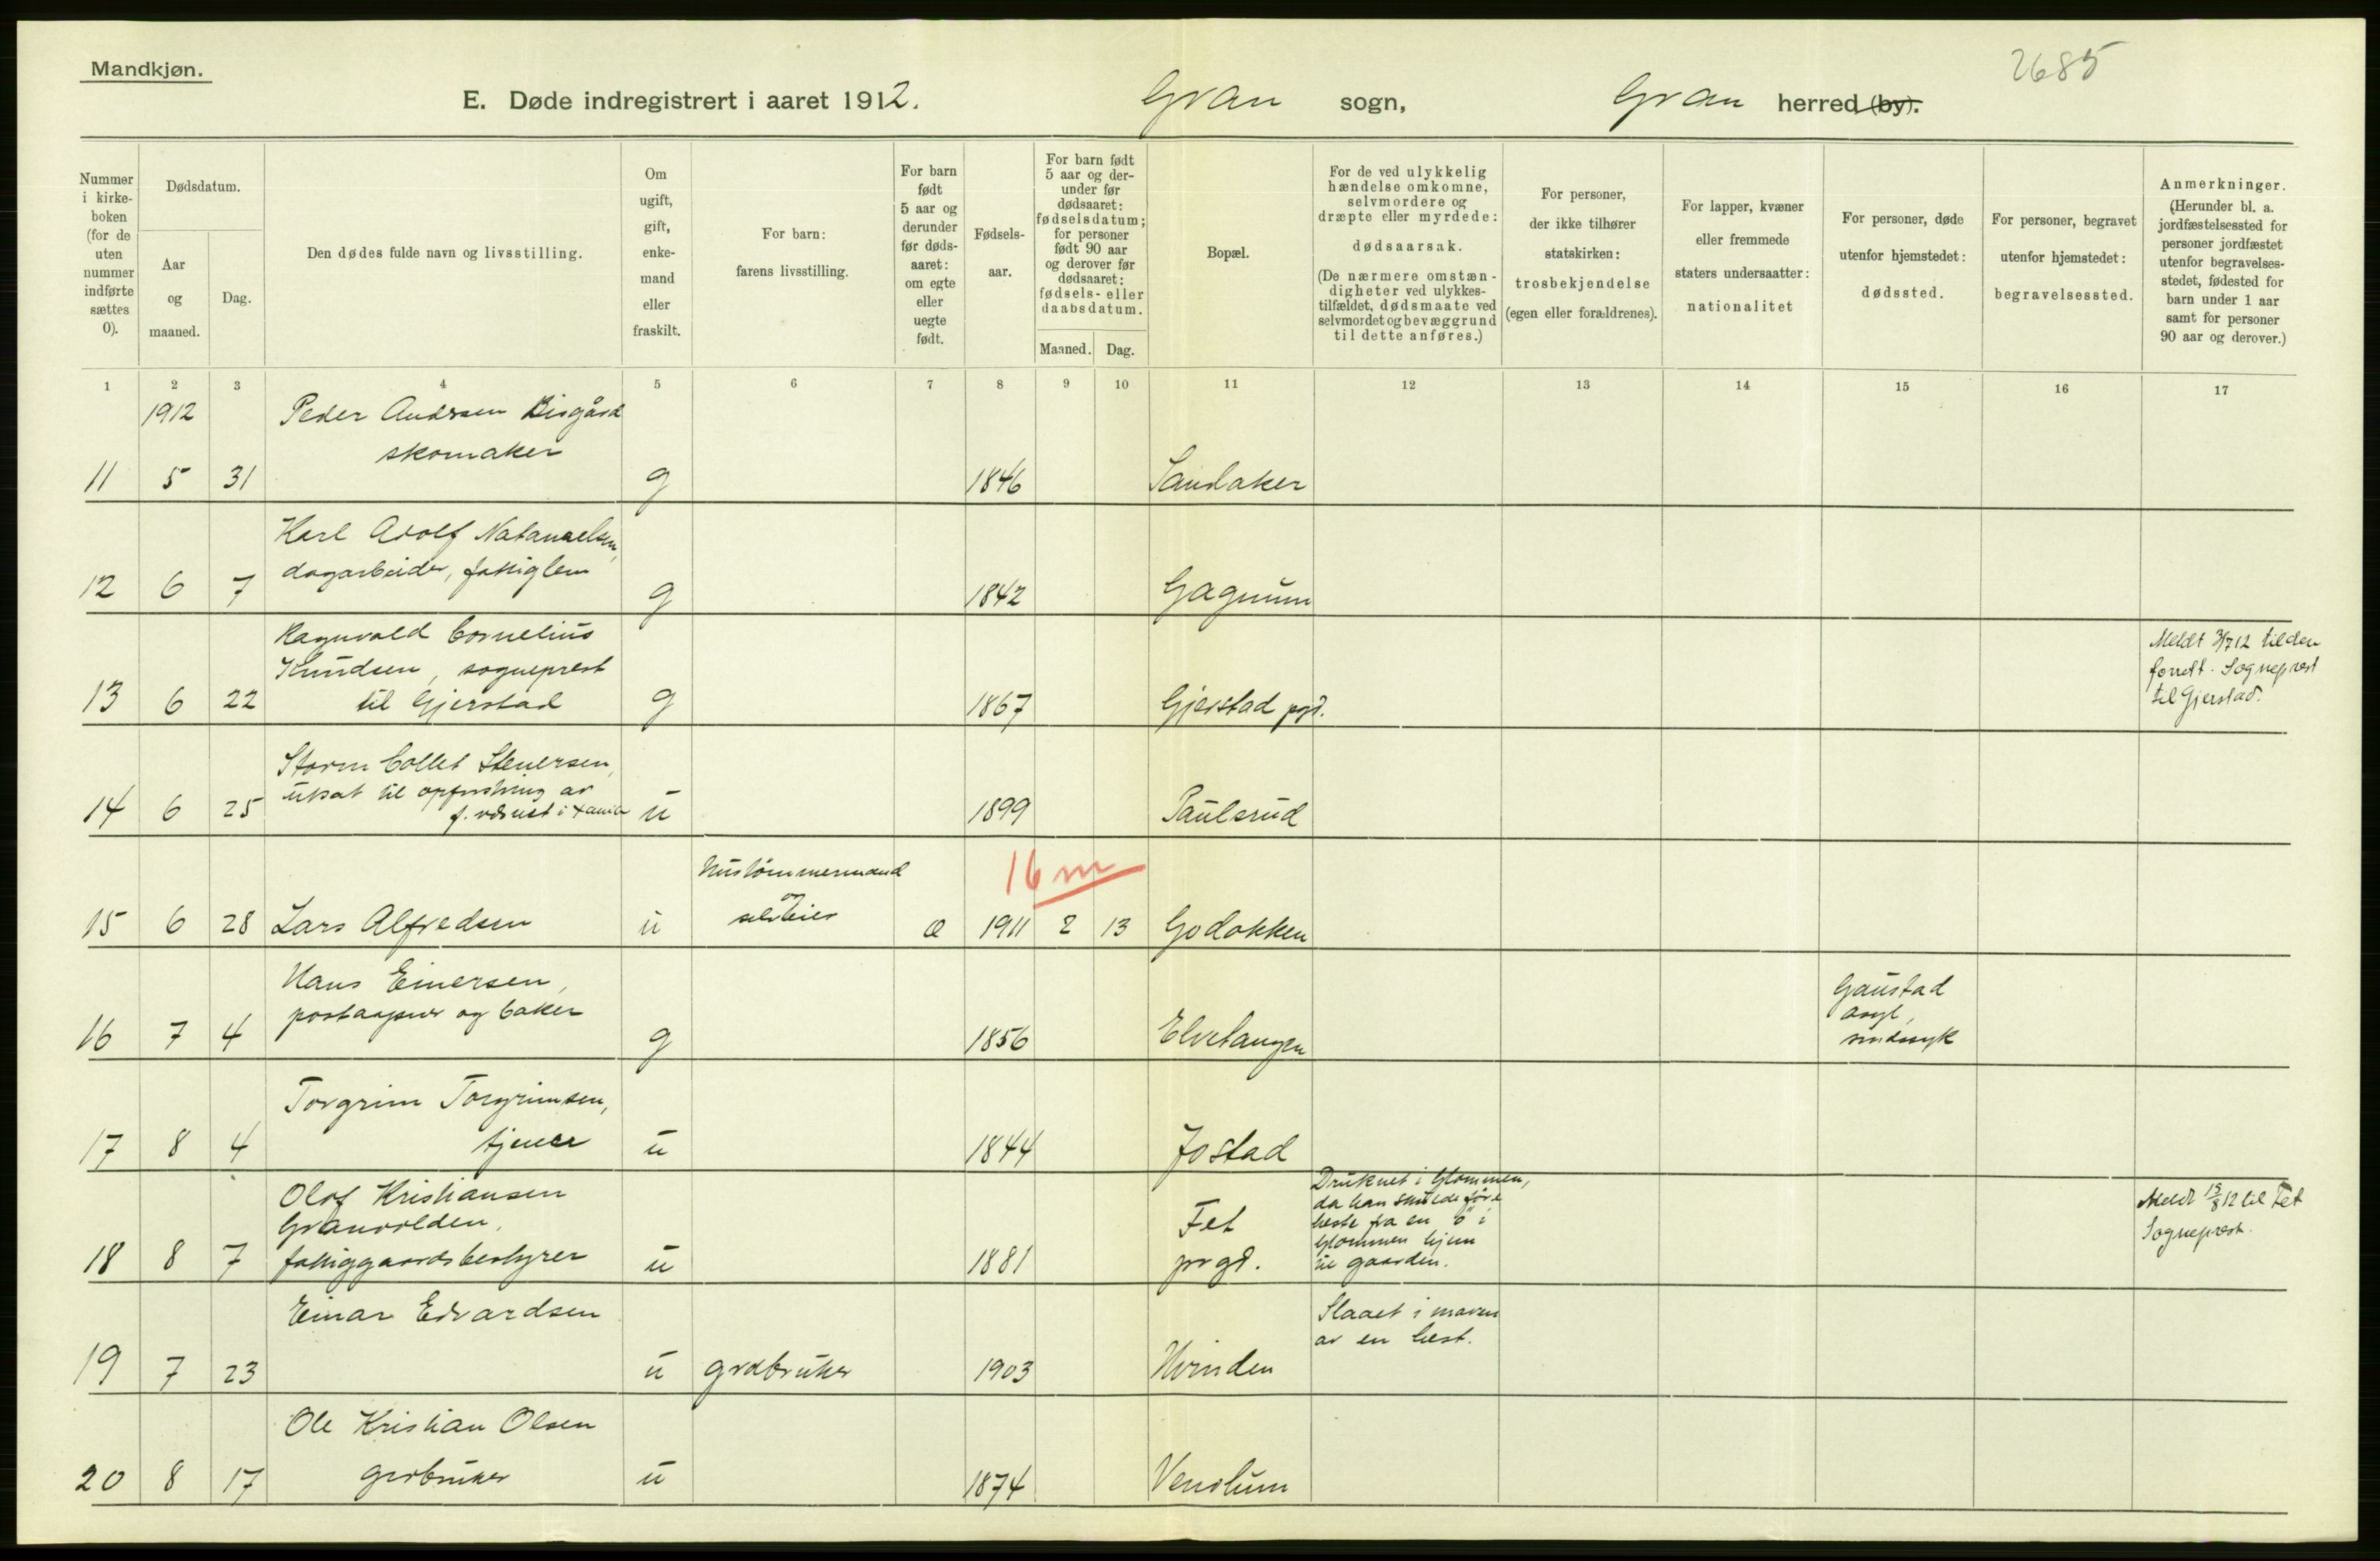 2685
Mandkjøn.
E. Døde indregistrert i aaret 1912. Gran sogn, Gran herred (by).
Nummer i kirkeboken (for de uten nummer indførte sættes 0).
Dødsdatum.
Aar og maaned.
Dag.
Den dødes fulde navn og livsstilling.
Om ugift, gift, enkemand eller fraskilt.
For barn: farens livsstilling.
For barn født 5 aar og derunder før dødsaaret: om egte eller uegte født.
Fødselsaar.
For barn født 5 aar og derunder før dødsaaret: fødselsdatum; for personer født 90 aar og derover før dødsaaret: fødsels- eller daabsdatum.
Maaned. Dag.
Bopæl.
For de ved ulykkelig hændelse omkomne, selvmordere og dræpte eller myrdede: dødsaarsak.
(De nærmere omstændigheter ved ulykkestilfældet, dødsmaate ved selvmordet og bevæggrund til dette anføres.)
For personer, der ikke tilhører statskirken: trosbekjendelse (egen eller forældrenes).
For lapper, kvæner eller fremmede staters undersaatter: nationalitet
For personer, døde utenfor hjemstedet: dødssted.
For personer, begravet utenfor hjemstedet: begravelsessted.
Anmerkninger. (Herunder bl. a. jordfæstelsessted for personer jordfæstet utenfor begravelsesstedet, fødested for barn under 1 aar samt for personer 90 aar og derover.)
1 2 3 4 5 6 7 8 9 10 11 12 13 14 15 16 17
1912 Peder Andrsen
skomaker
11 5 31 g 1846 Sandaker
Karl Adolf Natanaelsen,
dagarbeider, fattiglem
12 6 7 g 1842 Gagnum
Ragnvald Cornelius
Knudsen, sogneprest
til Gjerstad
13 6 22 g 1867 Gjerstad pgd.
Meldt 3/7 12 til den
forrett. Sogneprest
til Gjerstad.
Storm Collet Stenersen,
utsat til opfostring av
14 6 25 u 1899 Paulsrud
Hustømmermand
og
selveier
16 m
15 6 28 Lars Alfredsen u æ 1911 2 13 Godakken
Hans Einersen,
og baker
16 7 4 g 1856 Elvetangen
Gaustad
asyl,
sindssyk
Torgrim Torgrimsen,
tjener
17 8 4 u 1844 Jostad
Olof Kristiansen
Granvolden,
fattiggaardsbestyrer
18 8 7 u 1881 Fet
prgd.
Druknet i Glommen,
da han skulde føre
heste fra en "ö" i
Glommen hjem
til gaarden.
Meldt 15/8 12 til Fet
Sogneprest.
Einar Edvardsen
19 7 23 u grdbruker 1903 Hvinden
Slaaet i maven
av en hest.
Ole Kristian Olsen
grdbruker
20 8 17 u 1874 Venolum